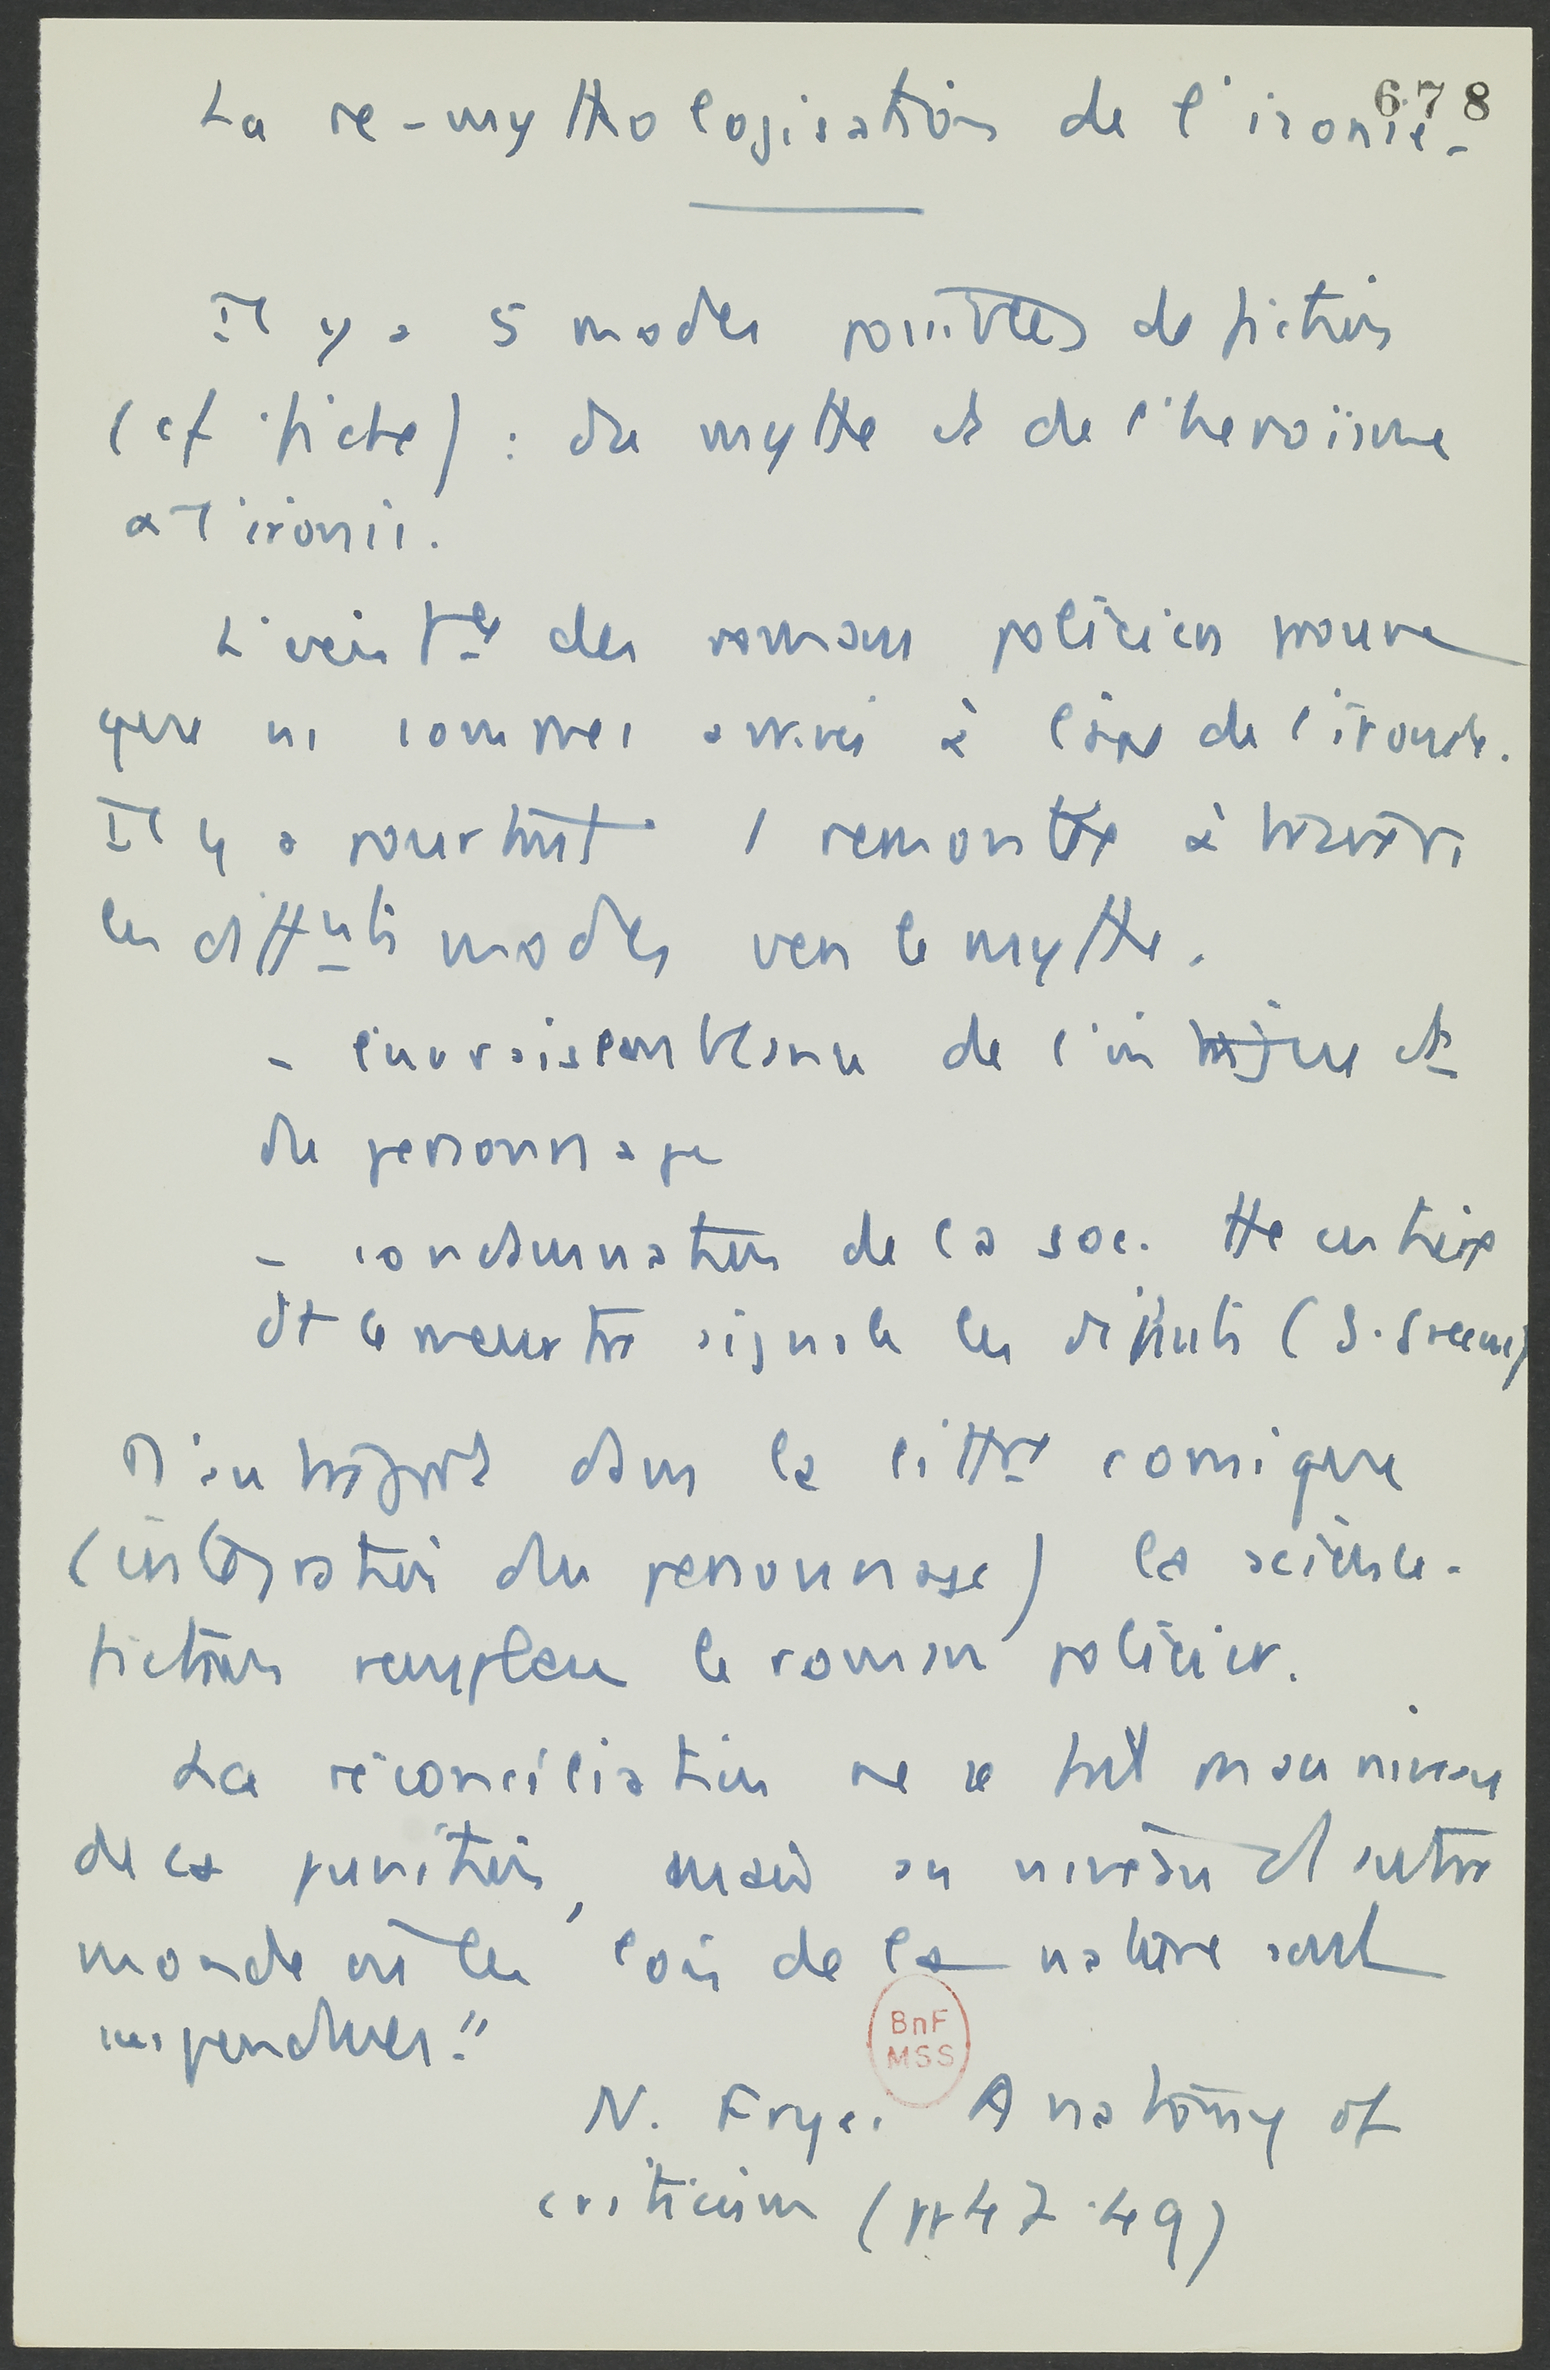 678
La re-mythologisation de l'ironie.
Il y a 5 modes possibles de fiction
(cf fiche) : du mythe et de l'heroïsme
a l'ironie.
L'existce des romans policiers prouve
que ns sommes arrivés à l'âge de l'ironie.
Il y a pourtant 1 remontée à travers
les diffnts modes vers le mythe.
- l'invraisemblance de l'intrigue et
du personnage
- condamnation de la soc. tte entière
dt le meurtre signale les défauts (G. Greene)
D'autre part dans la littre comique
(intégration du personnage) la science-
fiction remplace le roman policier.
La réconciliation ne se fait pas au niveau
de la punition, mais au niveau d'autre
monde où les lois de la nature sont
suspendues."
BnF
MSS
N. Frye. Anatomy of
criticism (pp 47-49)